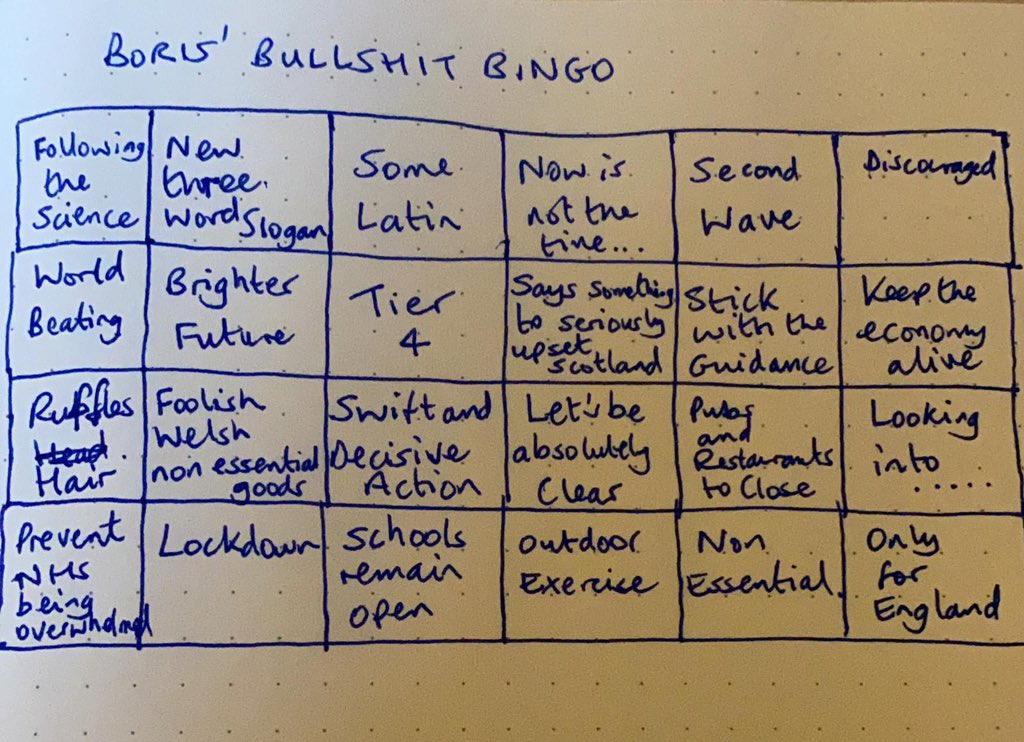 BORIS' BULLSHIT BINGO
Following
the
Science
New
three
word Slogan
Some
Latin
Now is
not the
time...
Second
Wave
Discouraged
World
Beating
Brighter
Future
Tier
4
Says something
to seriously
upset
Scotland
Stick
with the
Guidance
Keep the
economy
alive
Ruffles
Head
Hair
Foolish
Welsh
non essential
goods
Swift and
Decisive
Action
Let's be
absolutely
Clear
Pubs
and
Restaurants
to Close
Looking
into .....
Prevent
NHS
being
overwhelmed
Lockdown
Schools
remain
open
outdoor
Exercise
Non
Essential
Only
for
England